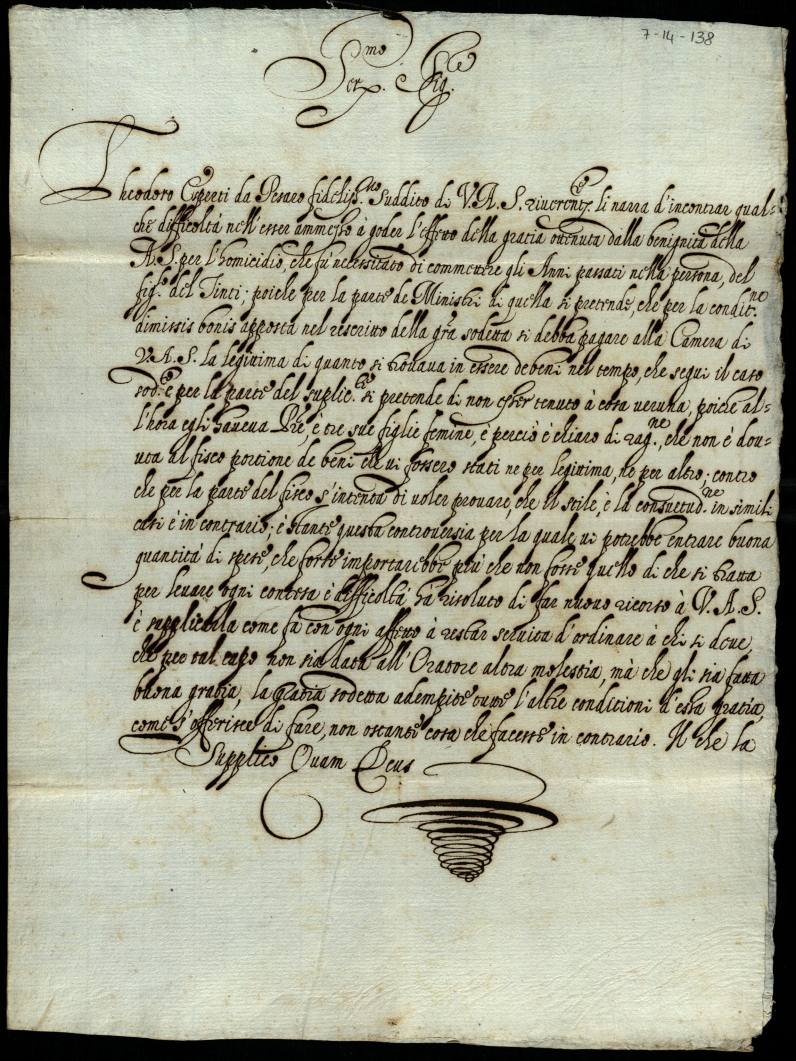 7-14-138
Ser.mo Sig.re
Theodoro da Pesaro fidelis.mo Suddito di V.A.S. riverentem.te li narra d'incontrar qual=
che difficoltà nell'esser ammesso à goder l'effetto della gratia ottenuta dalla benignità della
A.S. per l'homicidio, che fù necessitato di commettere gli Anni passati nella persona, del
fig.o del Tinti; poiche per la parte de Ministri di quella si pretende, che per la condit.ne
dimissis bonis apposta nel rescritto della gra sodetta si debba pagare alla Camera di
V.A.S. la legittima di quanto si trovava in essere de beni nel tempo, che segui il caso
sod.o è per la parte del suplic.te si pretende di non esser tenuto à cosa veruna, poiche al=
l'hora egli haveva Pře, è tre sue figlie femine, è perciò è chiaro di rag.ne, che non è dov=
uta al fisco portione de beni che vi fossero stati ne per legitima, ne per altro; contro
che per la parte del fisco s'intenta di voler provare, che il stile, è la consuetud.ne in simili
casi è in contrario; è stante questa controversia per la quale vi potrebbe entrare buona
quantità di spese, che forse importarebbe più che non fosse quello di che si tratta
per levare ogni contesa è difficoltà hà risoluto di far nuovo ricorso à V.A.S.
è supplicarla come fà con ogni affetto à restar servita d'ordinare à chi si deve,
che per tal capo non sia data all'Oratore altra molestia, mà che gli sia fatta
buona gratia, la gratia sodetta adempite tutte l'altre conditioni d'essa gratia,
come s'offerisce di fare, non ostante cosa che facesse in contrario. Il che la
Supplico Quam Deus